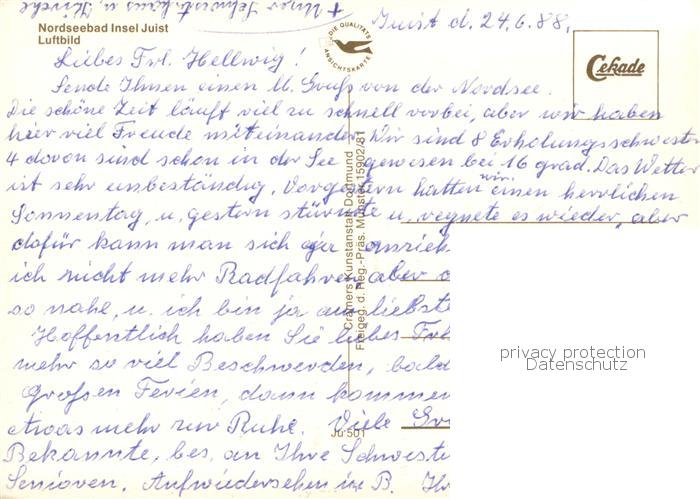 + Unser Schwesternhaus u. Kirche
Nordseebad Insel Juist
Luftbild
DIE QUALITÄTS
ANSICHTSKARTE
Cekade
Juist d. 24.6.88.
Liebes Frl. Hellwig!
Sende Ihnen einen lb. Gruß von der Nordsee.
Die schöne Zeit läuft viel zu schnell vorbei, aber wir haben
hier viel Freude miteinander. Wir sind 8 Erholungsschwest.
4 davon sind schon in der See gewesen bei 16 grad. Das Wetter
ist sehr unbeständig, Vorgestern hatten wir einen herrlichen
Sonnentag, u, gestern stürmte u, regnete es wieder, aber
dafür kann man sich ja anzieh
ich nicht mehr Radfahren, aber
so nahe, u. ich bin ja am liebste
Hoffentlich haben Sie liebes Frl
mehr so viel Beschwerden, bald
Großen Ferien, dann kommen
etwas mehr zur Ruhe. Viele Gr
Bekannte, bes. an Ihre Schweste
Senioren. Aufwiedersehen in B. Ihr
Cramers Kunstanstalt Dortmund
Freigeg. d. Reg.-Präs. Münster 15902/81
Ju 501
privacy protection
Datenschutz